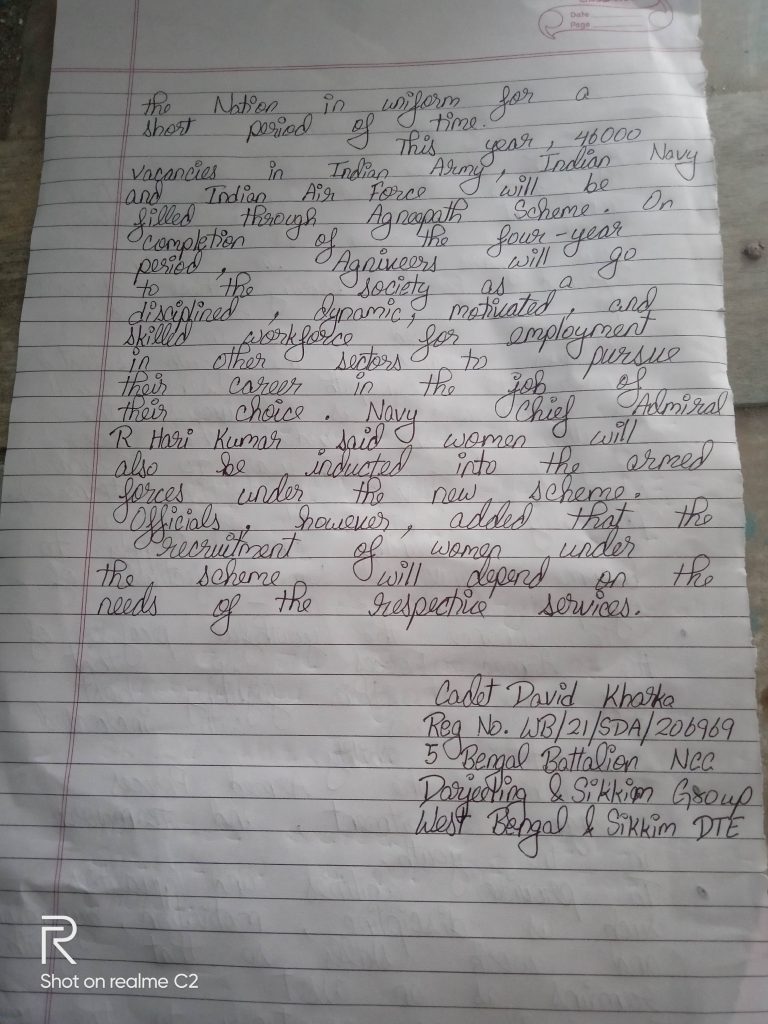 Date
Page
the Nation in uniform for a
short period of time.
This year, 46000
vacancies in Indian Army, Indian Navy
and Indian Air Force will be
filled through Agneepath Scheme. On
completion of the four-year
period, Agniveers will go
to the society as a
disciplined, dynamic, motivated, and
skilled workforce for employment
in other sectors to pursue
their career in the job of
their choice. Navy Chief Admiral
R Hari Kumar said women will
also be inducted into the armed
forces under the new scheme.
Officials, however, added that the
recruitment of women under
the scheme will depend on the
needs of the respective services.
Cadet David Kharka
Reg No. WB/21/SDA/206969
5 Bengal Battalion NCC
Darjeeling & Sikkim Group
West Bengal & Sikkim DTE
R
Shot on realme C2